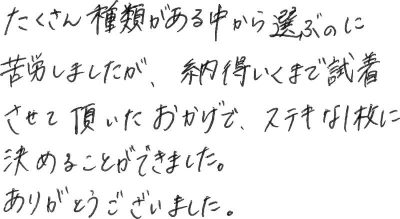 たくさん種類がある中から選ぶのに
苦労しましたが、納得いくまで試着
させて頂いたおかげで、ステキな1枚に
決めることができました。
ありがとうございました。